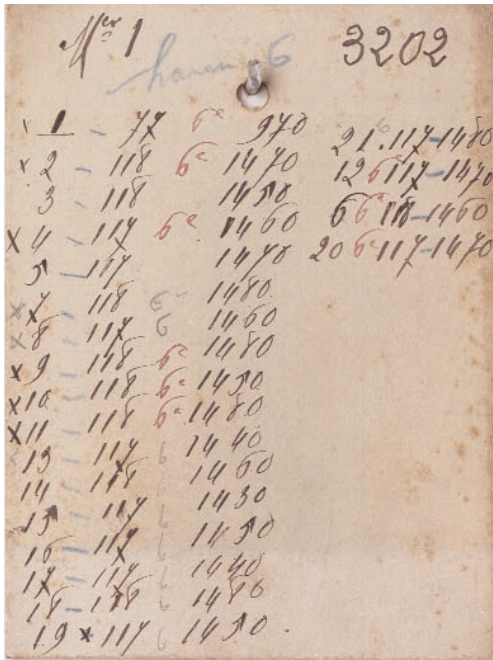 Mer 1 3202
haven 6
x 1 - 77 6e 970
x 2 - 118 6e 1470
3 - 118 1450
x 4 - 117 6e 1460
5 - 117 1470
x 7 - 118 6 - 1480
x 8 - 117 6 1460
x 9 - 118 6e 1480
x 10 - 118 6e 1450
x 11 - 118 6e 1480
x 13 - 117 6 1440
14 - 118 6 1460
15 - 117 6 1430
16 - 117 6 1450
17 - 117 6 1440
18 - 118 6 1480
19 x 117 6 1450.
21. 6 117-1480
12 6e 117-1470
6 6e 118-1460
20 6e 117-1470